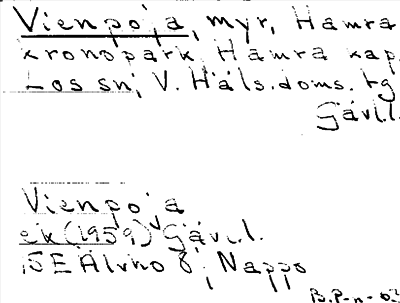 Vienpo'a, myr, Hamra
kronopark, Hamra kap.
Los sn, V. Häls. doms. tg
Gävl.l.
Vienpo'a
ek (1959) Gävl.l.
SE Älvho 8, Nappo